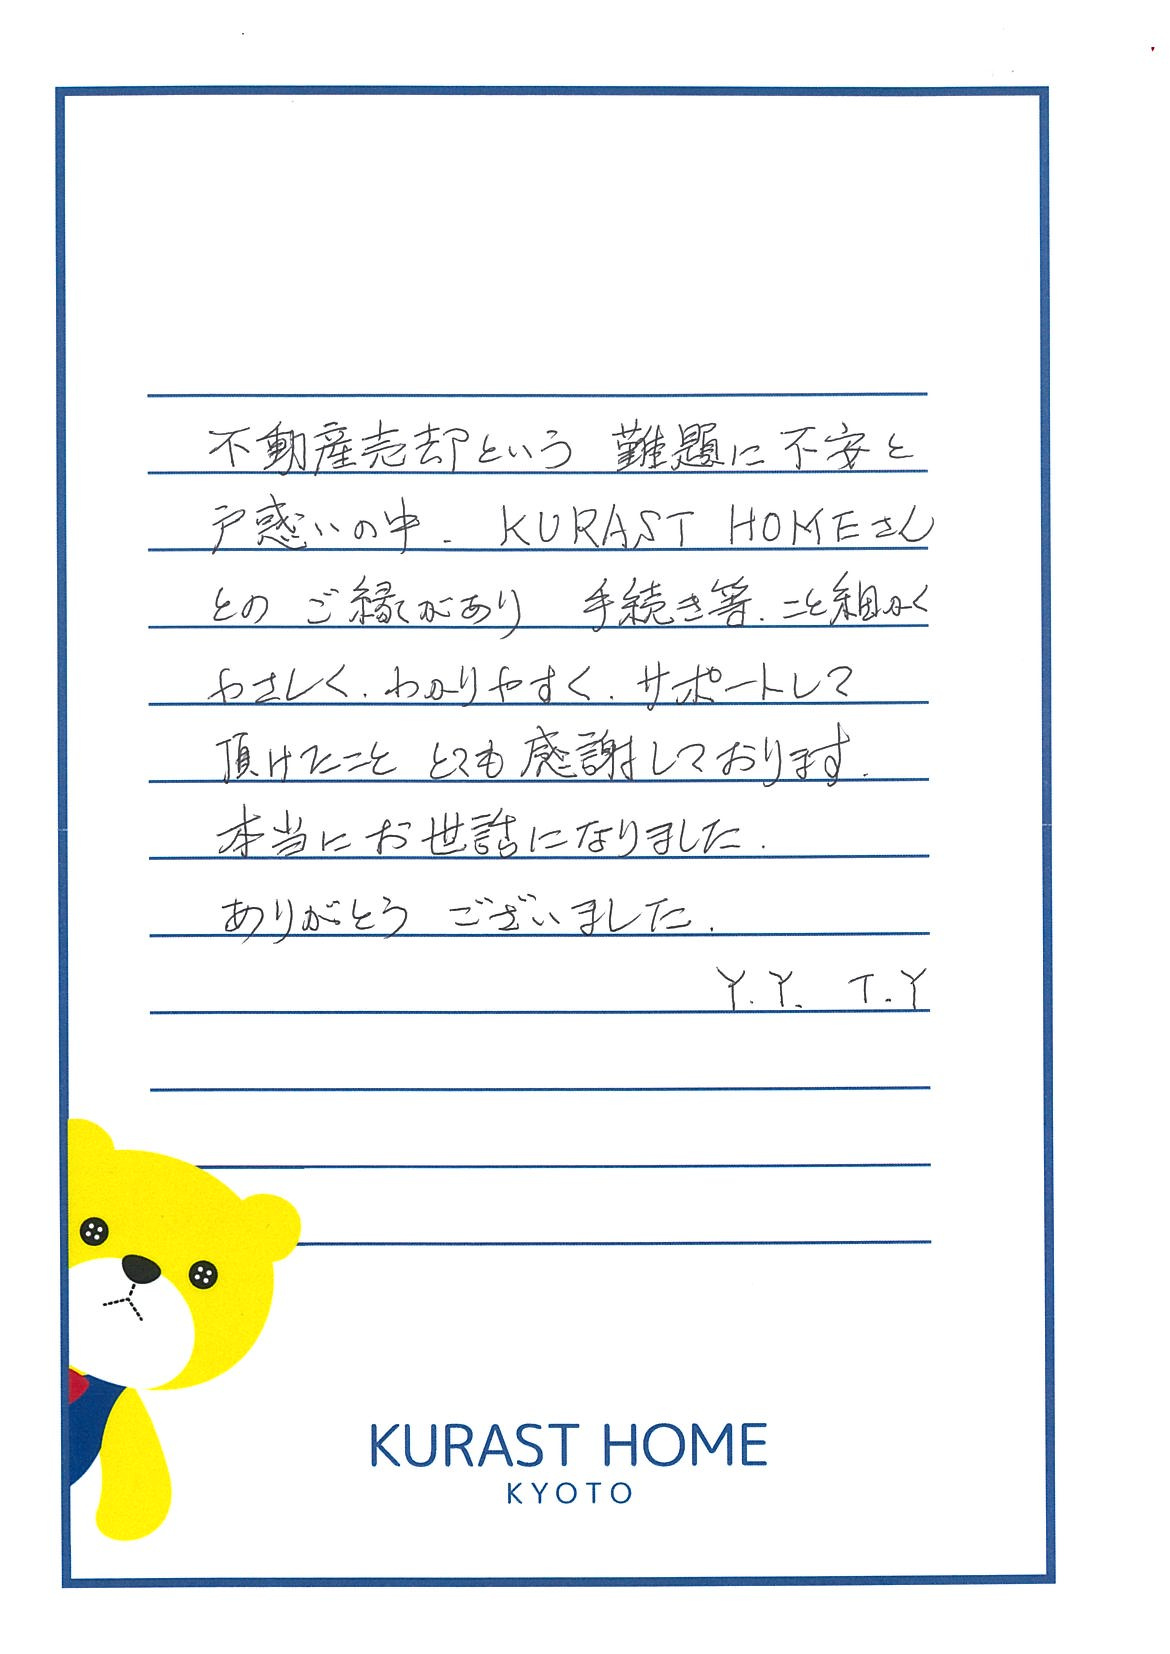 不動産売却という 難題に不安と
戸惑いの中. KURAST HOMEさん
との ご縁があり 手続き等. こと細かく
やさしく. わかりやすく. サポートして
頂けたこと とても感謝しております.
本当にお世話になりました.
ありがとう ございました.
Y.Y. T.Y
KURAST HOME
KYOTO